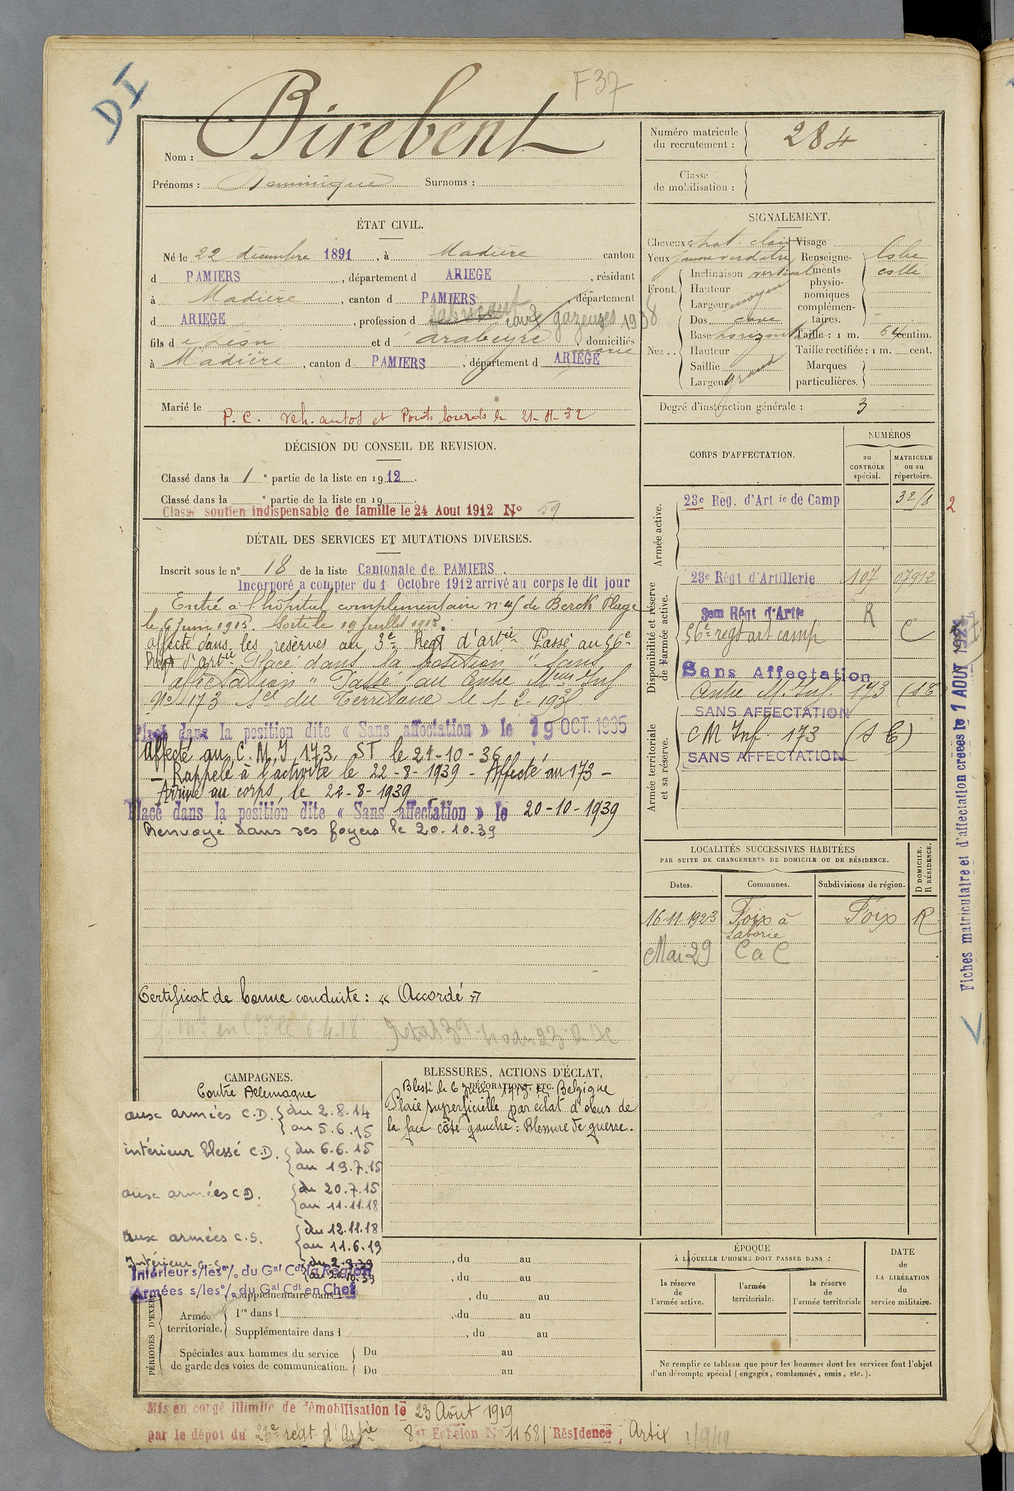 DI
F37
Nom : Birebent
Prénoms : Dominique Surnoms :
Numéro matricule du recrutement : 284
Classe de mobilisation :
ÉTAT CIVIL.
Né le 22 décembre 1891, à Madière canton
d PAMIERS, département d ARIEGE, résidant
à Madière, canton d PAMIERS, département
d ARIEGE, profession d gazeuses
fils d e Léon et d' Arabeyre domiciliés
à Madière, canton d PAMIERS, département d ARIÈGE
Marié le
P.C. veh. autos et Poids lourds le 21-11-32
SIGNALEMENT.
Cheveux chat. clair
Yeux
Front. Inclinaison verticale
Hauteur
Largeur moyen
Nez.. Dos cave
Base horizontal
Hauteur
Saillie
Largeur grand
Visage
Renseignements physionomiques complémentaires.
Taille : 1 m. 64 centim.
Taille rectifiée : 1 m. cent.
Marques particulières.
Degré d'instruction générale : 3
DÉCISION DU CONSEIL DE REVISION.
Classé dans la 1 e partie de la liste en 1912.
Classé dans la e partie de la liste en 19
Classé soutien indispensable de famille le 24 Aout 1912 No 59
DÉTAIL DES SERVICES ET MUTATIONS DIVERSES.
Inscrit sous le n° 18 de la liste Cantonale de PAMIERS.
Incorporé a compter du 1 Octobre 1912 arrivé au corps le dit jour
Entré à l'hôpital complémentaire de Berck Plage
le 6 juin 1915. Sorti le 19 juillet 1915.
affecté dans les réserves au 3e Regt d'artie Passé au 56e
Regt d'artie Placé dans la position "sans
affectation" Passé au Centre Mon Inf
No 173 Son du Territoire le 1.2.
Placé dans la position dite « Sans affectation » le 19 OCT. 1935
Affecté au C.M.I 173 ST le 21-10-36
- Rappelé à l'activité le 22-8-1939 - Affecté au 173 -
- Arrivé au corps, le 22-8-1939
Placé dans la position dite « Sans affectation » le 20-10-1939
Renvoyé dans ses foyers le 20.10.39
Certificat de bonne conduite : « Accordé »
CORPS D'AFFECTATION.
NUMÉROS
au CONTRÔLE spécial.
MATRICULE ou au répertoire.
Armée active.
23e Reg. d'Art ie de Camp
2
Disponibilité et réserve de l'armée active.
23e Régt d'Artillerie 107
3em Régt d'Artie R
56e regt art camp C
Sans Affectation
Centre M. Inf. 173
SANS AFFECTATION
Armée territoriale et sa réserve.
CM Inf 173
SANS AFFECTATION
Fiches matriculaire et d'affectation créées le
LOCALITÉS SUCCESSIVES HABITÉES
PAR SUITE DE CHANGEMENTS DE DOMICILE OU DE RÉSIDENCE.
D DOMICILE. R RÉSIDENCE.
Dates. Communes. Subdivisions de région.
16-11-1923 Foix à Laborie Foix R
Mai 29 C a C
CAMPAGNES.
Contre Allemagne
aux armées C.D. du 2.8.14
au 5.6.15
intérieur blessé C.D. du 6.6.15
au 19.7.15
aux armées C.D. du 20.7.15
au 11.11.18
aux armées C.S. du 12.11.18
au 11.6.19
Intérieur s/les o/ du Gal Cdt la Région
Armées s/les o/ du Gal Cdt en Chef
BLESSURES, ACTIONS D'ÉCLAT,
DÉCORATIONS, ETC.
Blessé le 6 1915 en Belgique
Plaie superficielle par éclat d'obus de
la face côté gauche : Blessure de guerre.
PÉRIODES D'EXER
, du au
, du au
Supplémentaire dans l , du au
Armée territoriale. 1re dans l , du au
Supplémentaire dans l , du au
Spéciales aux hommes du service de garde des voies de communication. Du au
Du au
ÉPOQUE
À LAQUELLE L'HOMME DOIT PASSER DANS :
la réserve de l'armée active.
l'armée territoriale.
la réserve de l'armée territoriale
DATE DE LA LIBÉRATION du service militaire.
Ne remplir ce tableau que pour les hommes dont les services font l'objet
d'un décompte spécial (engagés, condamnés, omis, etc.).
Mis en congé illimité de démobilisation le 23 Août 1919
par le dépôt du 23e régt d'Artie 8e Echelon No 11681 Résidence, Artix